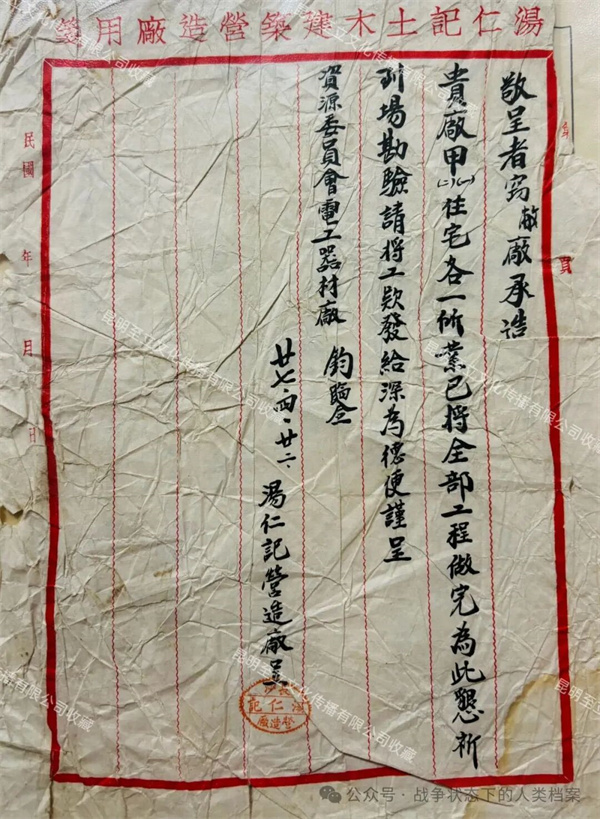 湯仁記土木建築營造廠用箋
敬呈者窃敝廠承造
貴廠甲(一)(二)住宅各一所業已將全部工程做完為此懇祈
到場勘驗請將工款發給深為德便謹呈
資源委員會電工器材廠 鈞鑒
廿七·四·廿二 湯仁記營造廠呈
湯仁記
營造廠
民國 年 月 日
頁
昆明至立文化传播有限公司收藏
公众号·战争状态下的人类档案